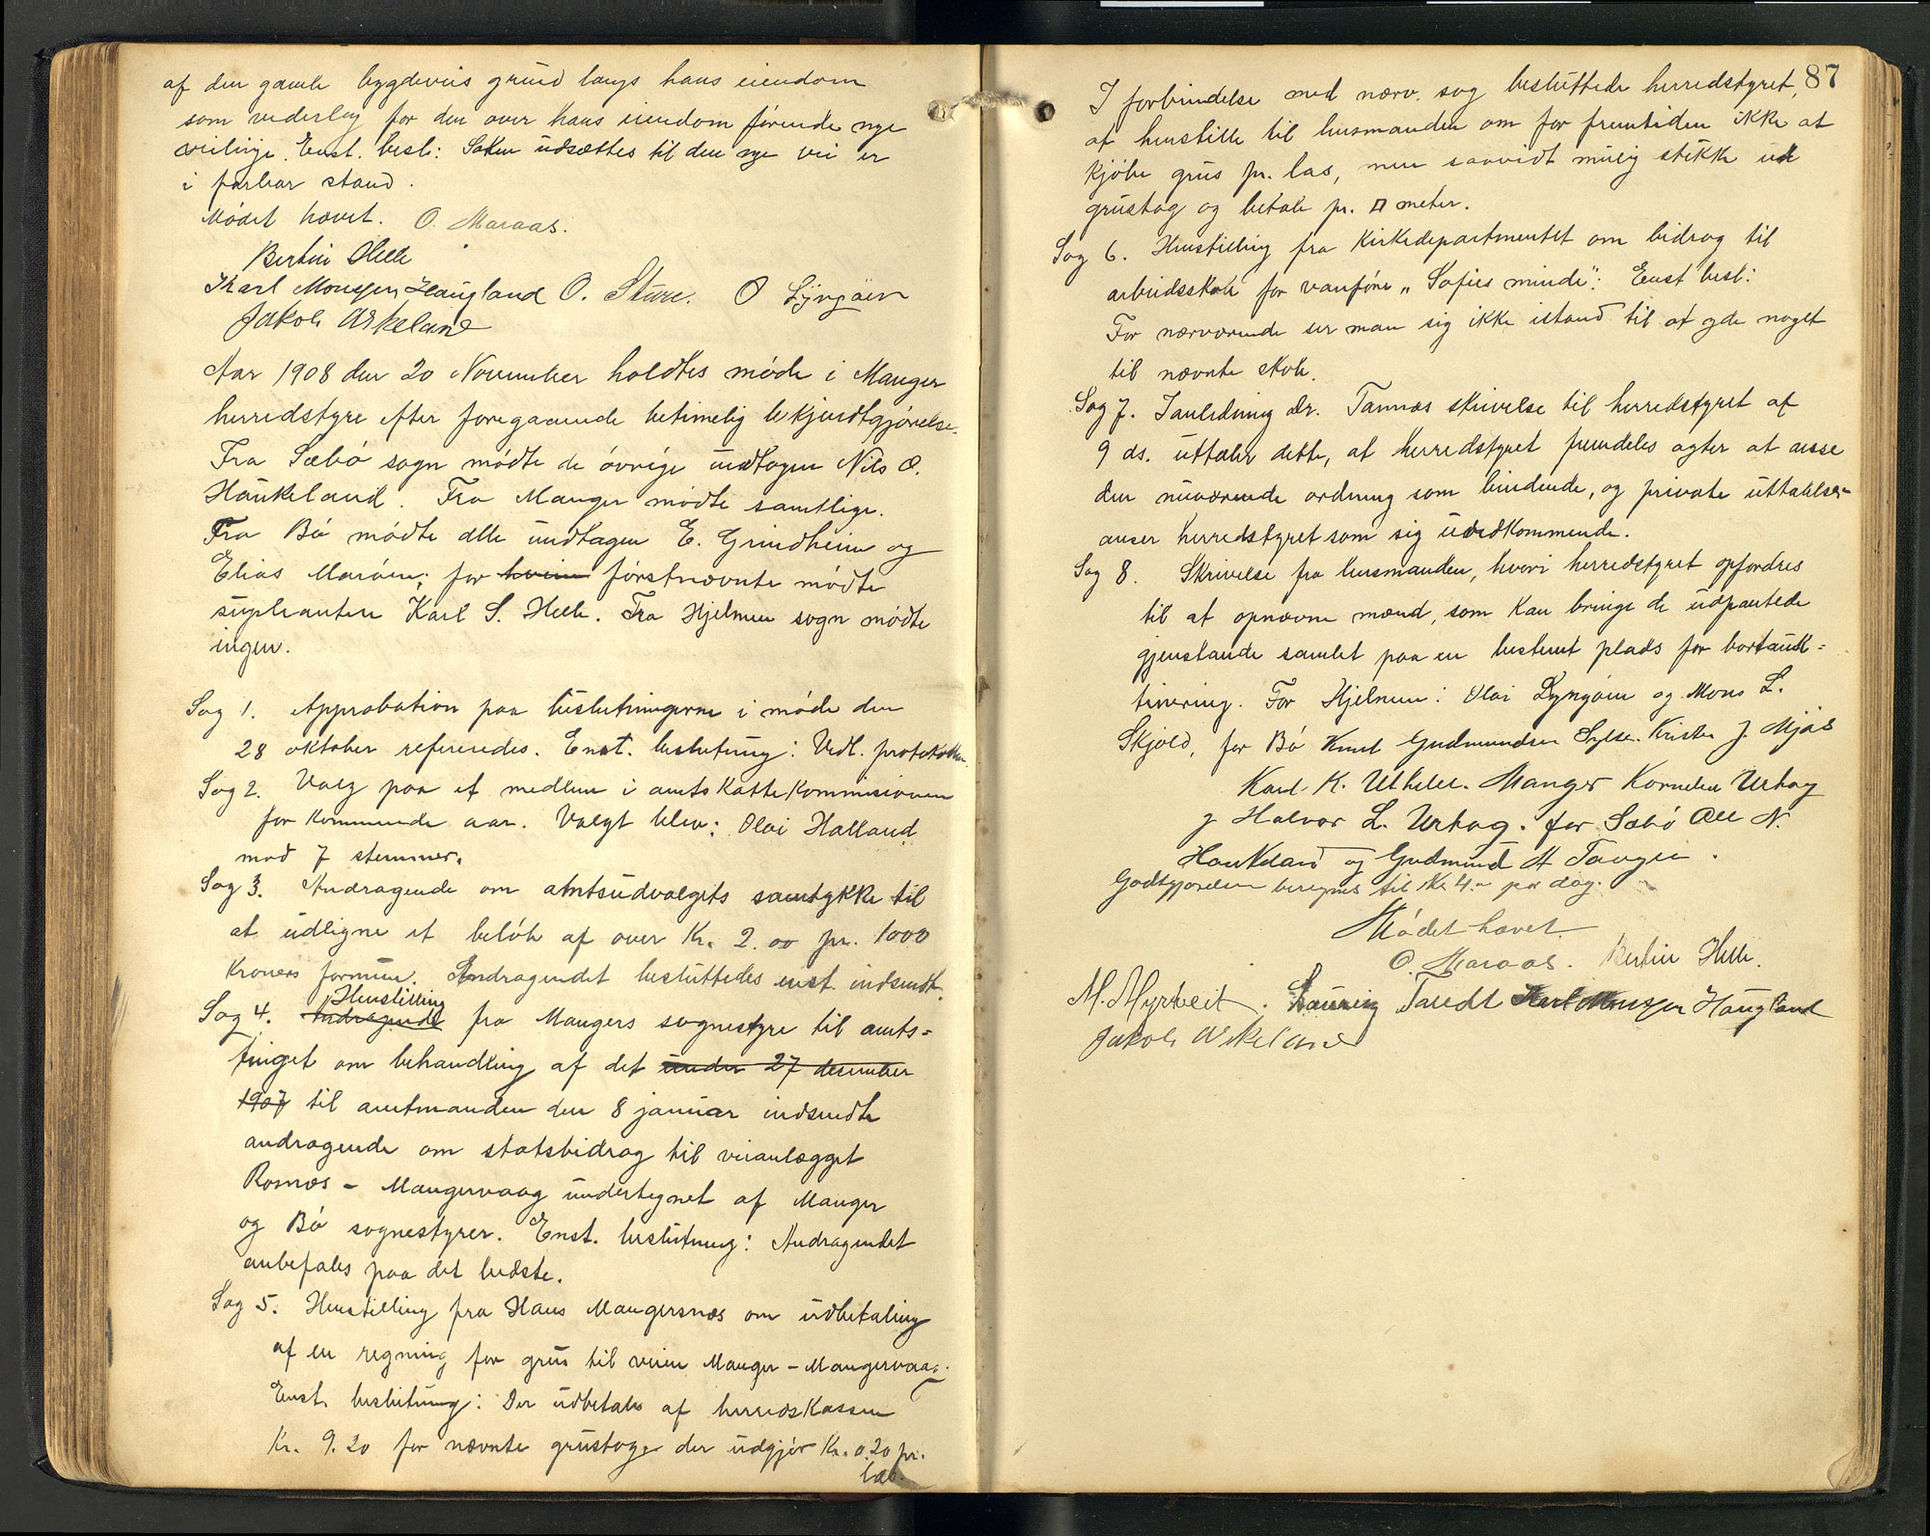 af den gamle bygdeveis grund langs hans eiendom
som vederlag for den over hans eiendom førende nye
veilinje. Enst. besl: Saken udsættes til den nye vei er
i farbar stand.
Mødet hævet. O. Maraas.
Bertin Helle
Karl Monsen Haugland O. Sture. O Lyngøen
Jakob Askeland
Aar 1908 den 20 November holdtes møde i Manger
herredstyre efter foregaaende betimelig bekjendtgjørelse.
Fra Sæbø sogn mødte de øvrige undtagen Nils O.
Haukeland. Fra Manger mødte samtlige.
Fra Bø mødte alle undtagen E. Grindheim og
Elias Marøen; for hvem førstnævnte mødte
supleanten Karl S. Helle. Fra Hjelmen sogn mødte
ingen.
Sag 1. Approbation paa beslutningerne i møde den
28 oktober refereredes. Enst. beslutning: Vedl. protokollen.
Sag 2. Valg paa et medlem i amtsskattekommisionen
for kommende aar. Valgt blev: Olai Halland
med 7 stemmer.
Sag 3. Andragende om amtsudvalgets samtykke til
at udligne et beløb af over Kr. 2.00 pr. 1000
kroners formue. Andragendet besluttedes enst. indsendt.
Henstilling
Sag 4. Andragende fra Mangers sognestyre til amts-
tinget om behandling af det under 27 desember
1907 til amtmanden den 8 januar indsendte
andragende om statsbidrag til veianlægget
Rosnæs - Mangervaag undertegnet af Manger
og Bø sognestyrer. Enst. beslutning: Andragendet
anbefales paa det bedste.
Sag 5. Henstilling fra Hans Mangersnæs om udbetaling
af en regning for grus til veien Manger - Mangervaag.
Enst. beslutning: Der udbetales af herredskassen
Kr. 9.20 for nævnte grustage der udgjør Kr. 0.20 pr.
læs.
87
I forbindelse med nærv. sag besluttede herredstyret,
at henstille til lensmanden om for fremtiden ikke at
kjøbe grus pr. las, men saavidt mulig stikke ud
grustag og betale pr. □ meter.
Sag 6. Henstilling fra Kirkedepartmentet om bidrag til
arbeidsskole for vanføre "Sofies minde": Enst besl:
For nærværende ser man sig ikke istand til at yde noget
til nævnte skole.
Sag 7. I anledning dr. Tannæs skrivelse til herredstyret af
9 ds. uttaler dette, at herredstyret fremdeles agter at anse
den nuværende ordning som bindende, og private uttalelser
anser herredstyret som sig uvedkommende.
Sag 8. Skrivelse fra lensmanden, hvori herredstyret opfordres
til at opnævne mænd, som kan bringe de udpantede
gjenstande samlet paa en bestemt plads for bortauk-
tionering. For Hjelmen: Olai Lyngøen og Mons L.
Skjold, for Bø Knut Gudmundsen Sylte. Kristen J. Mjøs
Karl K. Utkilen. Manger Kornelius Urhag
Halvor L. Urhag. for Sæbø Ole N.
Haukeland og Gudmund A Tangen.
Godtgjørelsen beregnes til Kr 4.- pr dag.
Mødet hævet.
O. Maraas. Bertin Helle.
M. Myrtveit. Lauritz Tarldt Karl Monsen Haugland
Jakob Askeland